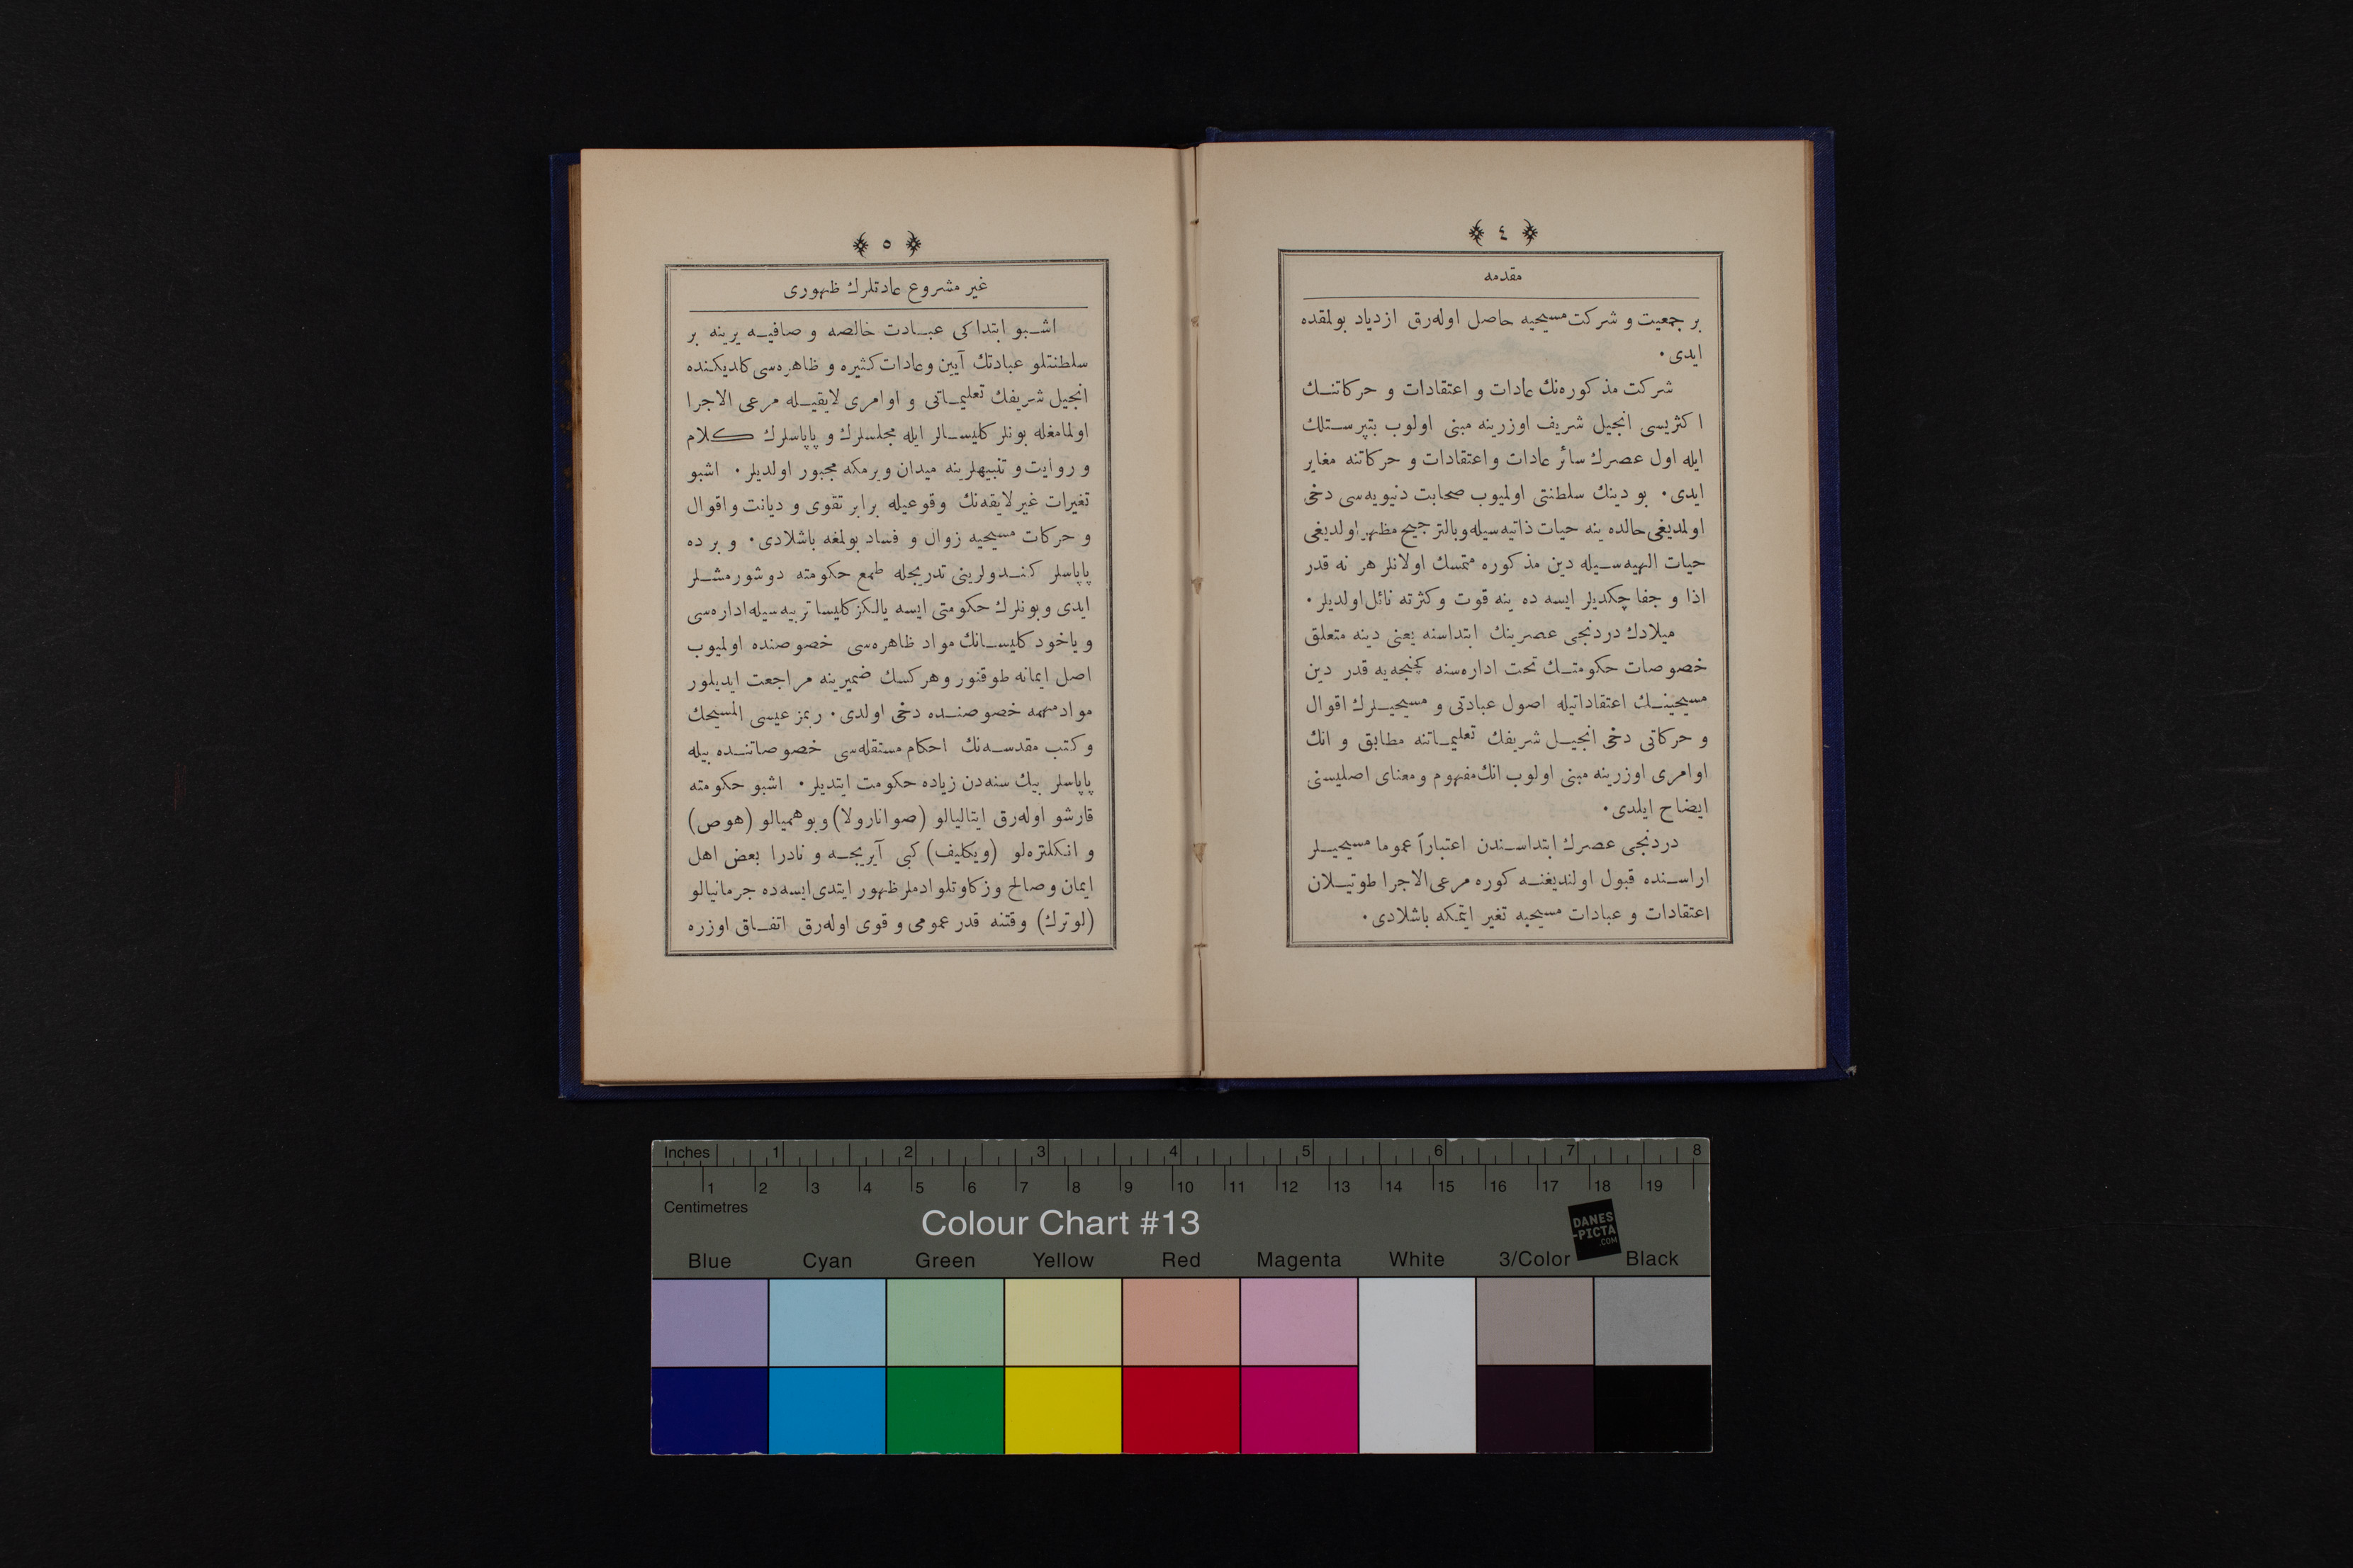 ٤
مقدمه
بر جمعیت و شرکت مسیحیه حاصل اوله‌رق ازدیاد بولمقده
ایدی ۰
شرکت مذکوره‌نك عادات و اعتقادات و حرکاتنك
اکثریسی انجیل شریف اوزرینه مبنی اولوب بتپرستلك
ایله اول عصرك سائر عادات و اعتقادات و حرکاتنه مغایر
ایدی ۰ بو دینك سلطنتی اولمیوب صحابت دنیویه‌سی دخی
اولمدیغی حالده ینه حیات ذاتیه‌سیله و بالترجیح مظهر اولدیغی
حیات الهیه‌سیله دین مذکوره متمسك اولانلر هر نه قدر
اذا و جفا چکدیلر ایسه ده ینه قوت و کثرته نائل اولدیلر ۰
میلادك دردنجی عصرینك ابتداسنه یعنی دینه متعلق
خصوصات حکومتك تحت اداره‌سنه کچنجه‌یه قدر دین
مسیحینك اعتقاداتیله اصول عبادتی و مسیحیلرك اقوال
و حرکاتی دخی انجیل شریفك تعلیماتنه مطابق و انك
اوامری اوزرینه مبنی اولوب انك مفهوم و معنای اصلیسنی
ایضاح ایلدی ۰
دردنجی عصرك ابتداسندن اعتباراً عموما مسیحیلر
اراسنده قبول اولندیغنه کوره مرعی الاجرا طوتیلان
اعتقادات و عبادات مسیحیه تغیر ایتمکه باشلادی ۰
٥
غیر مشروع عادتلرك ظهوری
اشبو ابتداکی عبادت خالصه و صافیه یرینه بر
سلطنتلو عبادتك آیین و عادات کثیره و ظاهره‌سی کلدیکنده
انجیل شریفك تعلیماتی و اوامری لایقیله مرعی الاجرا
اولمامغله بونلر کلیسالر ایله مجلسلرك و پاپاسلرك کلام
و روایت و تنبیهلرینه میدان ویرمکه مجبور اولدیلر ۰ اشبو
تغیرات غیر لایقه‌نك وقوعیله برابر تقوی و دیانت و اقوال
و حرکات مسیحیه زوال و فساد بولمغه باشلادی ۰ و بر ده
پاپاسلر کندولرینی تدریجله طمع حکومته دوشورمشلر
ایدی و بونلرك حکومتی ایسه یالکز کلیسا تربیه‌سیله اداره‌سی
و یاخود کلیسانك مواد ظاهره‌سی خصوصنده اولمیوب
اصل ایمانه طوقنور و هر کسك ضمیرینه مراجعت ایدیلور
مواد مهمه خصوصنده دخی اولدی ۰ ربمز عیسی المسیحك
و کتب مقدسه‌نك احکام مستقله‌سی خصوصاتنده بیله
پاپاسلر بیك سنه‌دن زیاده حکومت ایتدیلر ۰ اشبو حکومته
قارشو اوله‌رق ایتالیالو (صوانارولا) و بوهمیالو (هوص)
و انکلتره‌لو (ویکلیف) کبی آیریجه و نادرا بعض اهل
ایمان و صالح و زکاوتلو ادملر ظهور ایتدی ایسه ده جرمانیالو
(لوترك) وقتنه قدر عمومی و قوی اوله‌رق اتفاق اوزره
Inches 1 2 3 4 5 6 7 8
1 2 3 4 5 6 7 8 9 10 11 12 13 14 15 16 17 18 19
Centimetres
Colour Chart #13
DANES
-PICTA
.COM
Blue Cyan Green Yellow Red Magenta White 3/Color Black